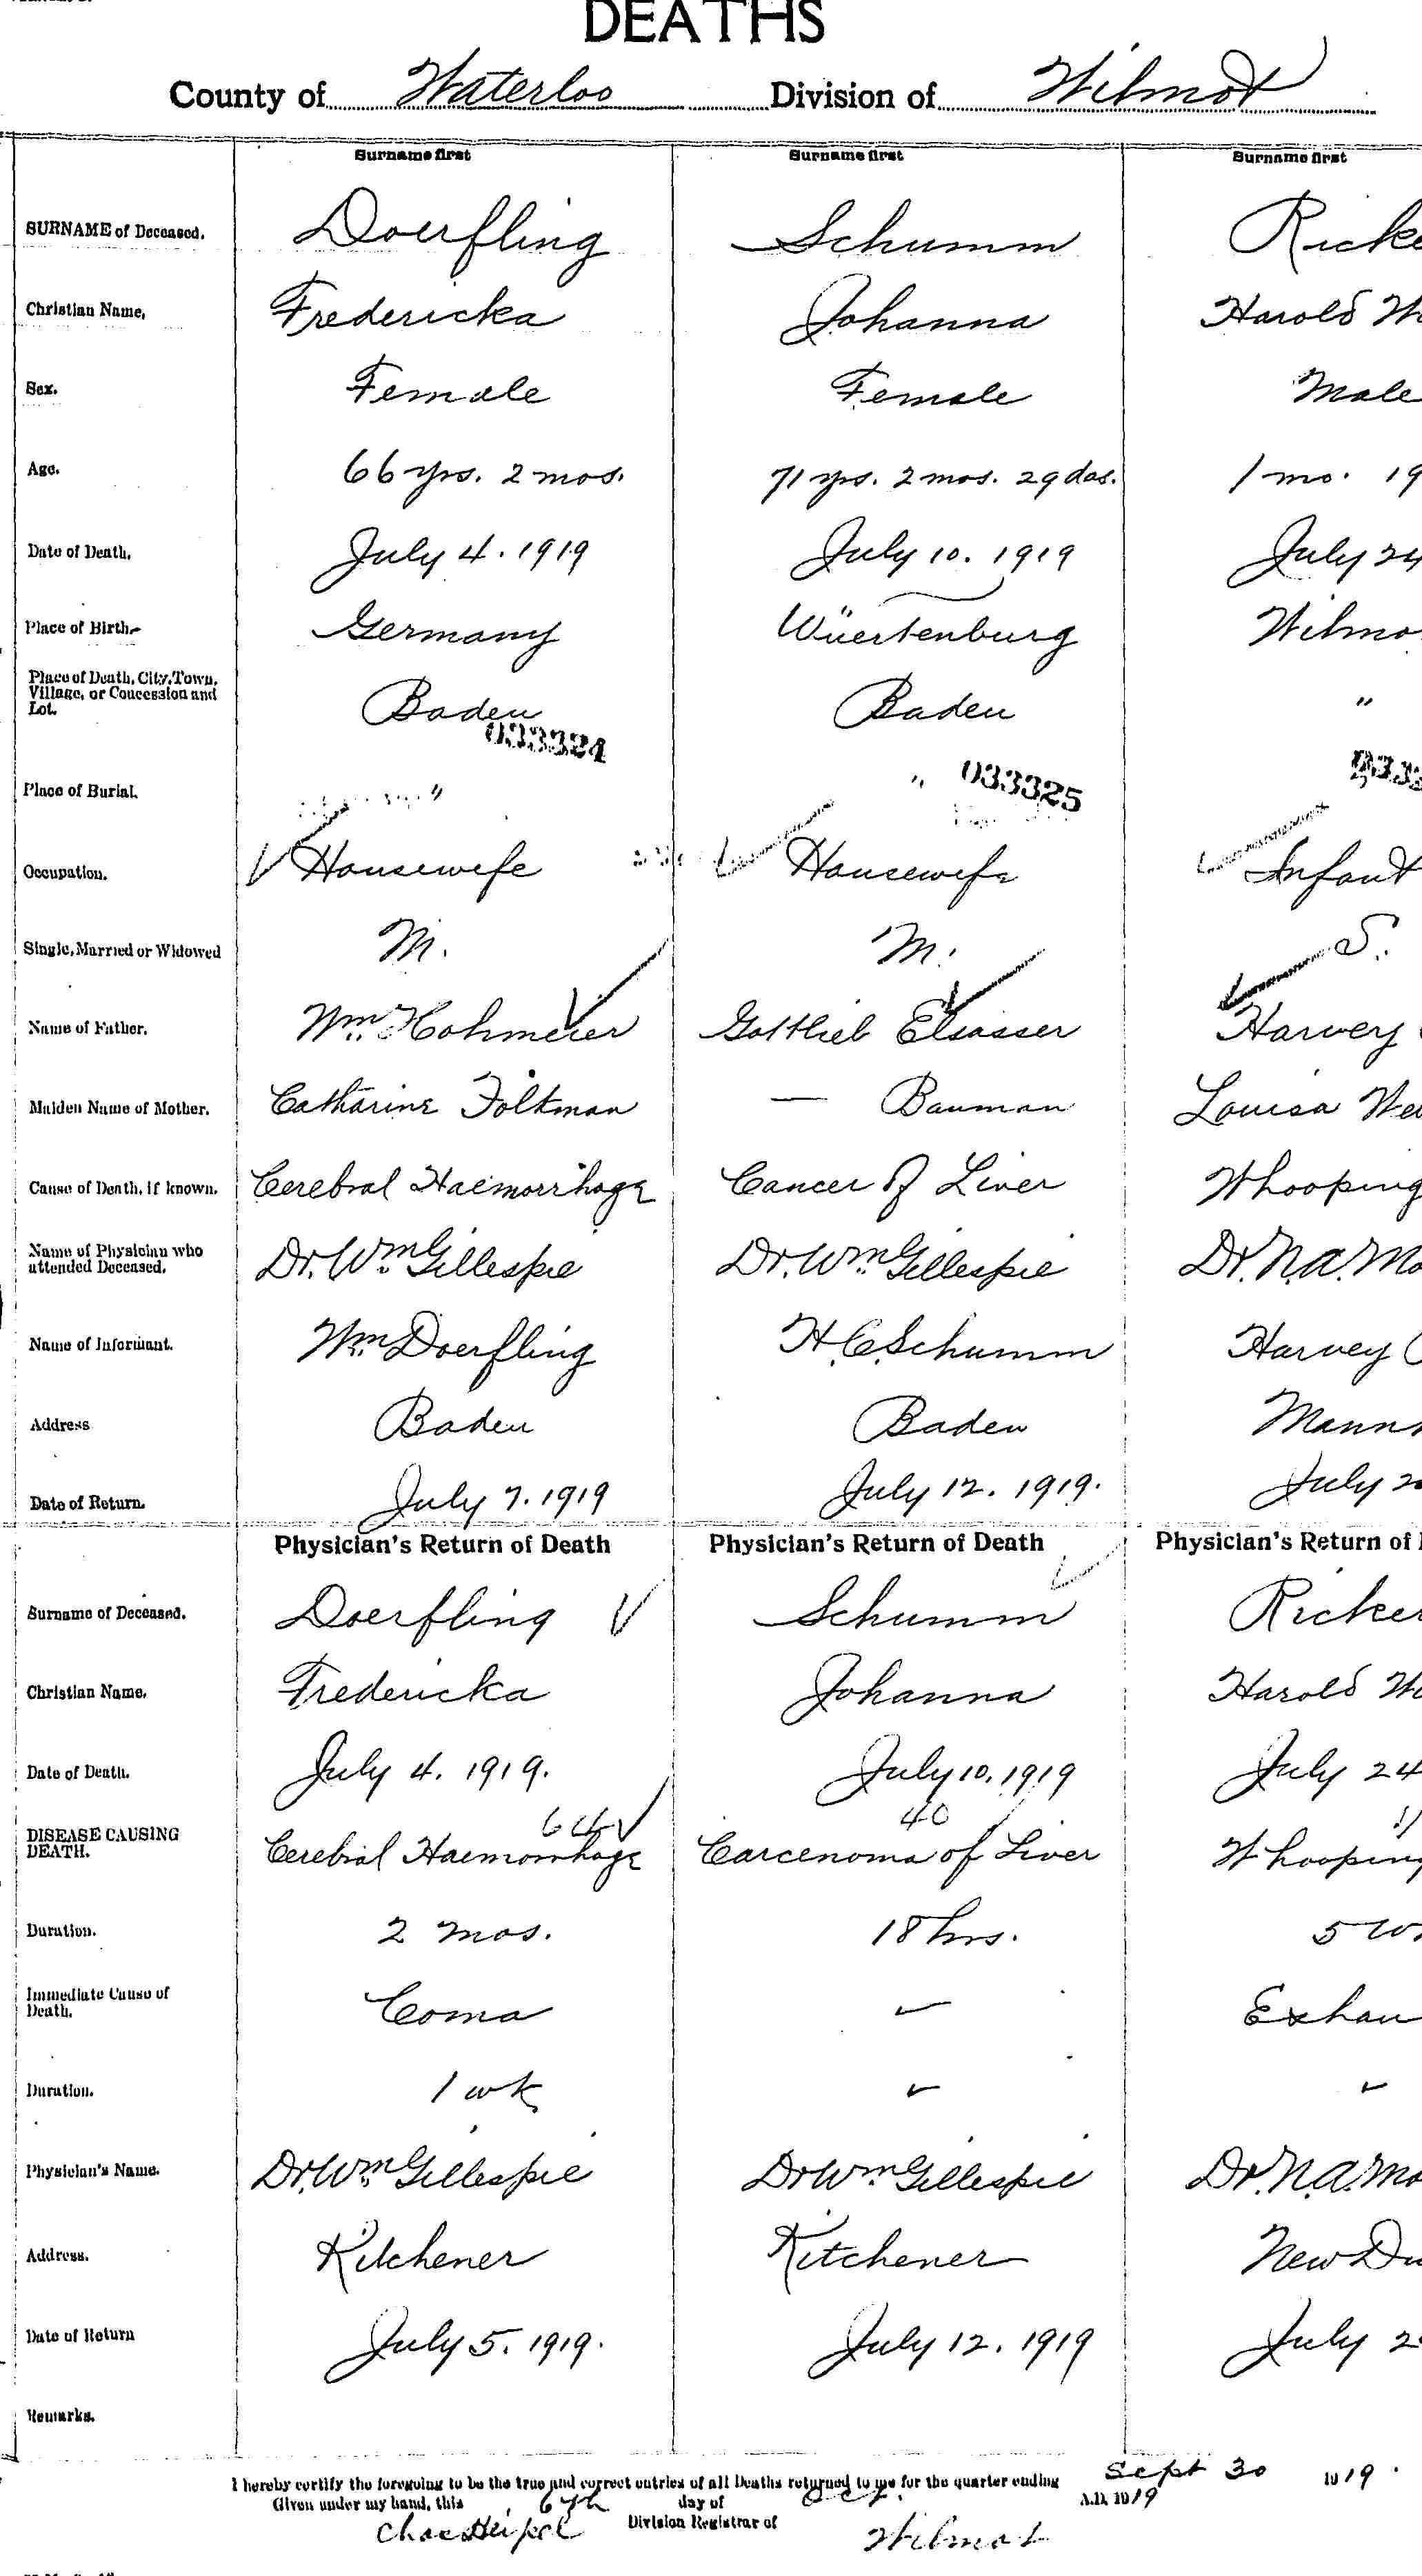 DEATHS
County of Waterloo Division of Wilmot
Surname first Surname first Surname first
SURNAME of Deceased. Doerfling Schumm Ricke
Christian Name, Fredericka Johanna Harold
Sex. Female Female Male
Age. 66 yrs. 2 mos. 71 yrs. 2 mos. 29 das. 1 mo. 19
Date of Death. July 4. 1919 July 10. 1919 July 24
Place of Birth. Germany Wüertenburg Wilmo
Place of Death, City, Town,
Village, or Concession and
Lot. Baden Baden "
033324
Place of Burial. " " 033325
Occupation. Housewife Housewife Infant
Single, Married or Widowed M. M. S.
Name of Father. Wm. Hohmeier Gottlieb Elsasser Harvey
Maiden Name of Mother. Catharine Foltman — Bauman Louisa We
Cause of Death, if known. Cerebral Haemorrhage Cancer of Liver Whooping
Name of Physician who
attended Deceased. Dr. Wm. Gillespie Dr. Wm. Gillespie Dr. N. A. Mo
Name of Informant. Wm. Doerfling H. C. Schumm Harvey
Address Baden Baden Mann
Date of Return. July 7. 1919 July 12. 1919. July 2
Physician's Return of Death Physician's Return of Death Physician's Return of
Surname of Deceased. Doerfling Schumm Ricker
Christian Name. Fredericka Johanna Harold
Date of Death. July 4. 1919. July 10. 1919 July 24
64 40
DISEASE CAUSING
DEATH. Cerebral Haemorrhage Carcenoma of Liver Whooping
Duration. 2 mos. 18 hrs. 5 w
Immediate Cause of
Death. Coma – Exhau
Duration. 1 wk – –
Physician's Name. Dr. Wm. Gillespie Dr Wm. Gillespie Dr. N. A. Mo
Address. Kitchener Kitchener New Du
Date of Return July 5. 1919. July 12. 1919 July 2
Remarks.
I hereby certify the foregoing to be the true and correct entries of all Deaths returned to me for the quarter ending Sept 30 1919.
Given under my hand, this 6th day of Oct. A.D. 1919
Division Registrar of Wilmot